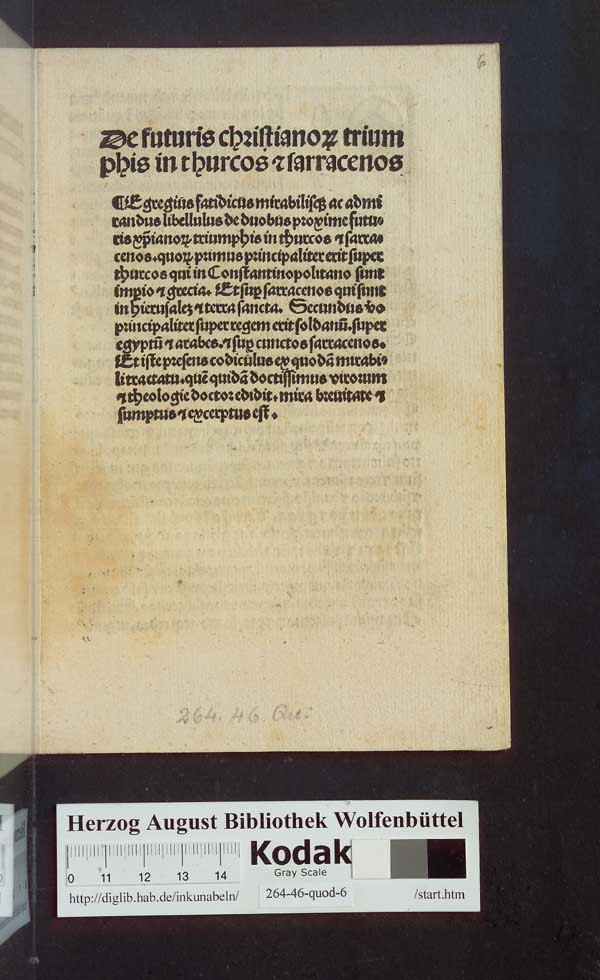 6
De futuris christianoꝝ trium
phis in thurcos ⁊ sarracenos
¶ Egregius fatidicus mirabilisqꝫ ac admi
randus libellulus de duobus proxime futu-
ris xp̃ianoꝝ triumphis in thurcos ⁊ sarra-
cenos. quoꝝ primus principaliter erit super
thurcos qui in Constantinopolitano sunt
imꝑio ⁊ grecia. Et suꝑ sarracenos qui sunt
in hierusalem ⁊ terra sancta. Secundus vo
principaliter super regem erit soldanū. super
egyptū ⁊ arabes. ⁊ suꝑ cunctos sarracenos.
Et iste presens codiculus ex quodā mirabi-
li tractatu. quē quidā doctissimus virorum
⁊ theologie doctor edidit. mira breuitate ⁊
sumptus ⁊ excerptus est.
264. 46. Qu.
Herzog August Bibliothek Wolfenbüttel
0 11 12 13 14
Kodak
Gray Scale
http://diglib.hab.de/inkunabeln/ 264-46-quod-6 /start.htm